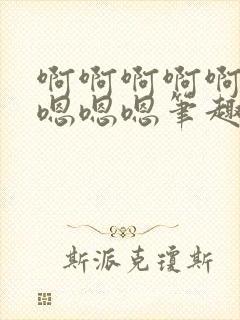 啊啊啊啊啊
嗯嗯嗯笔趣
斯派克琼斯